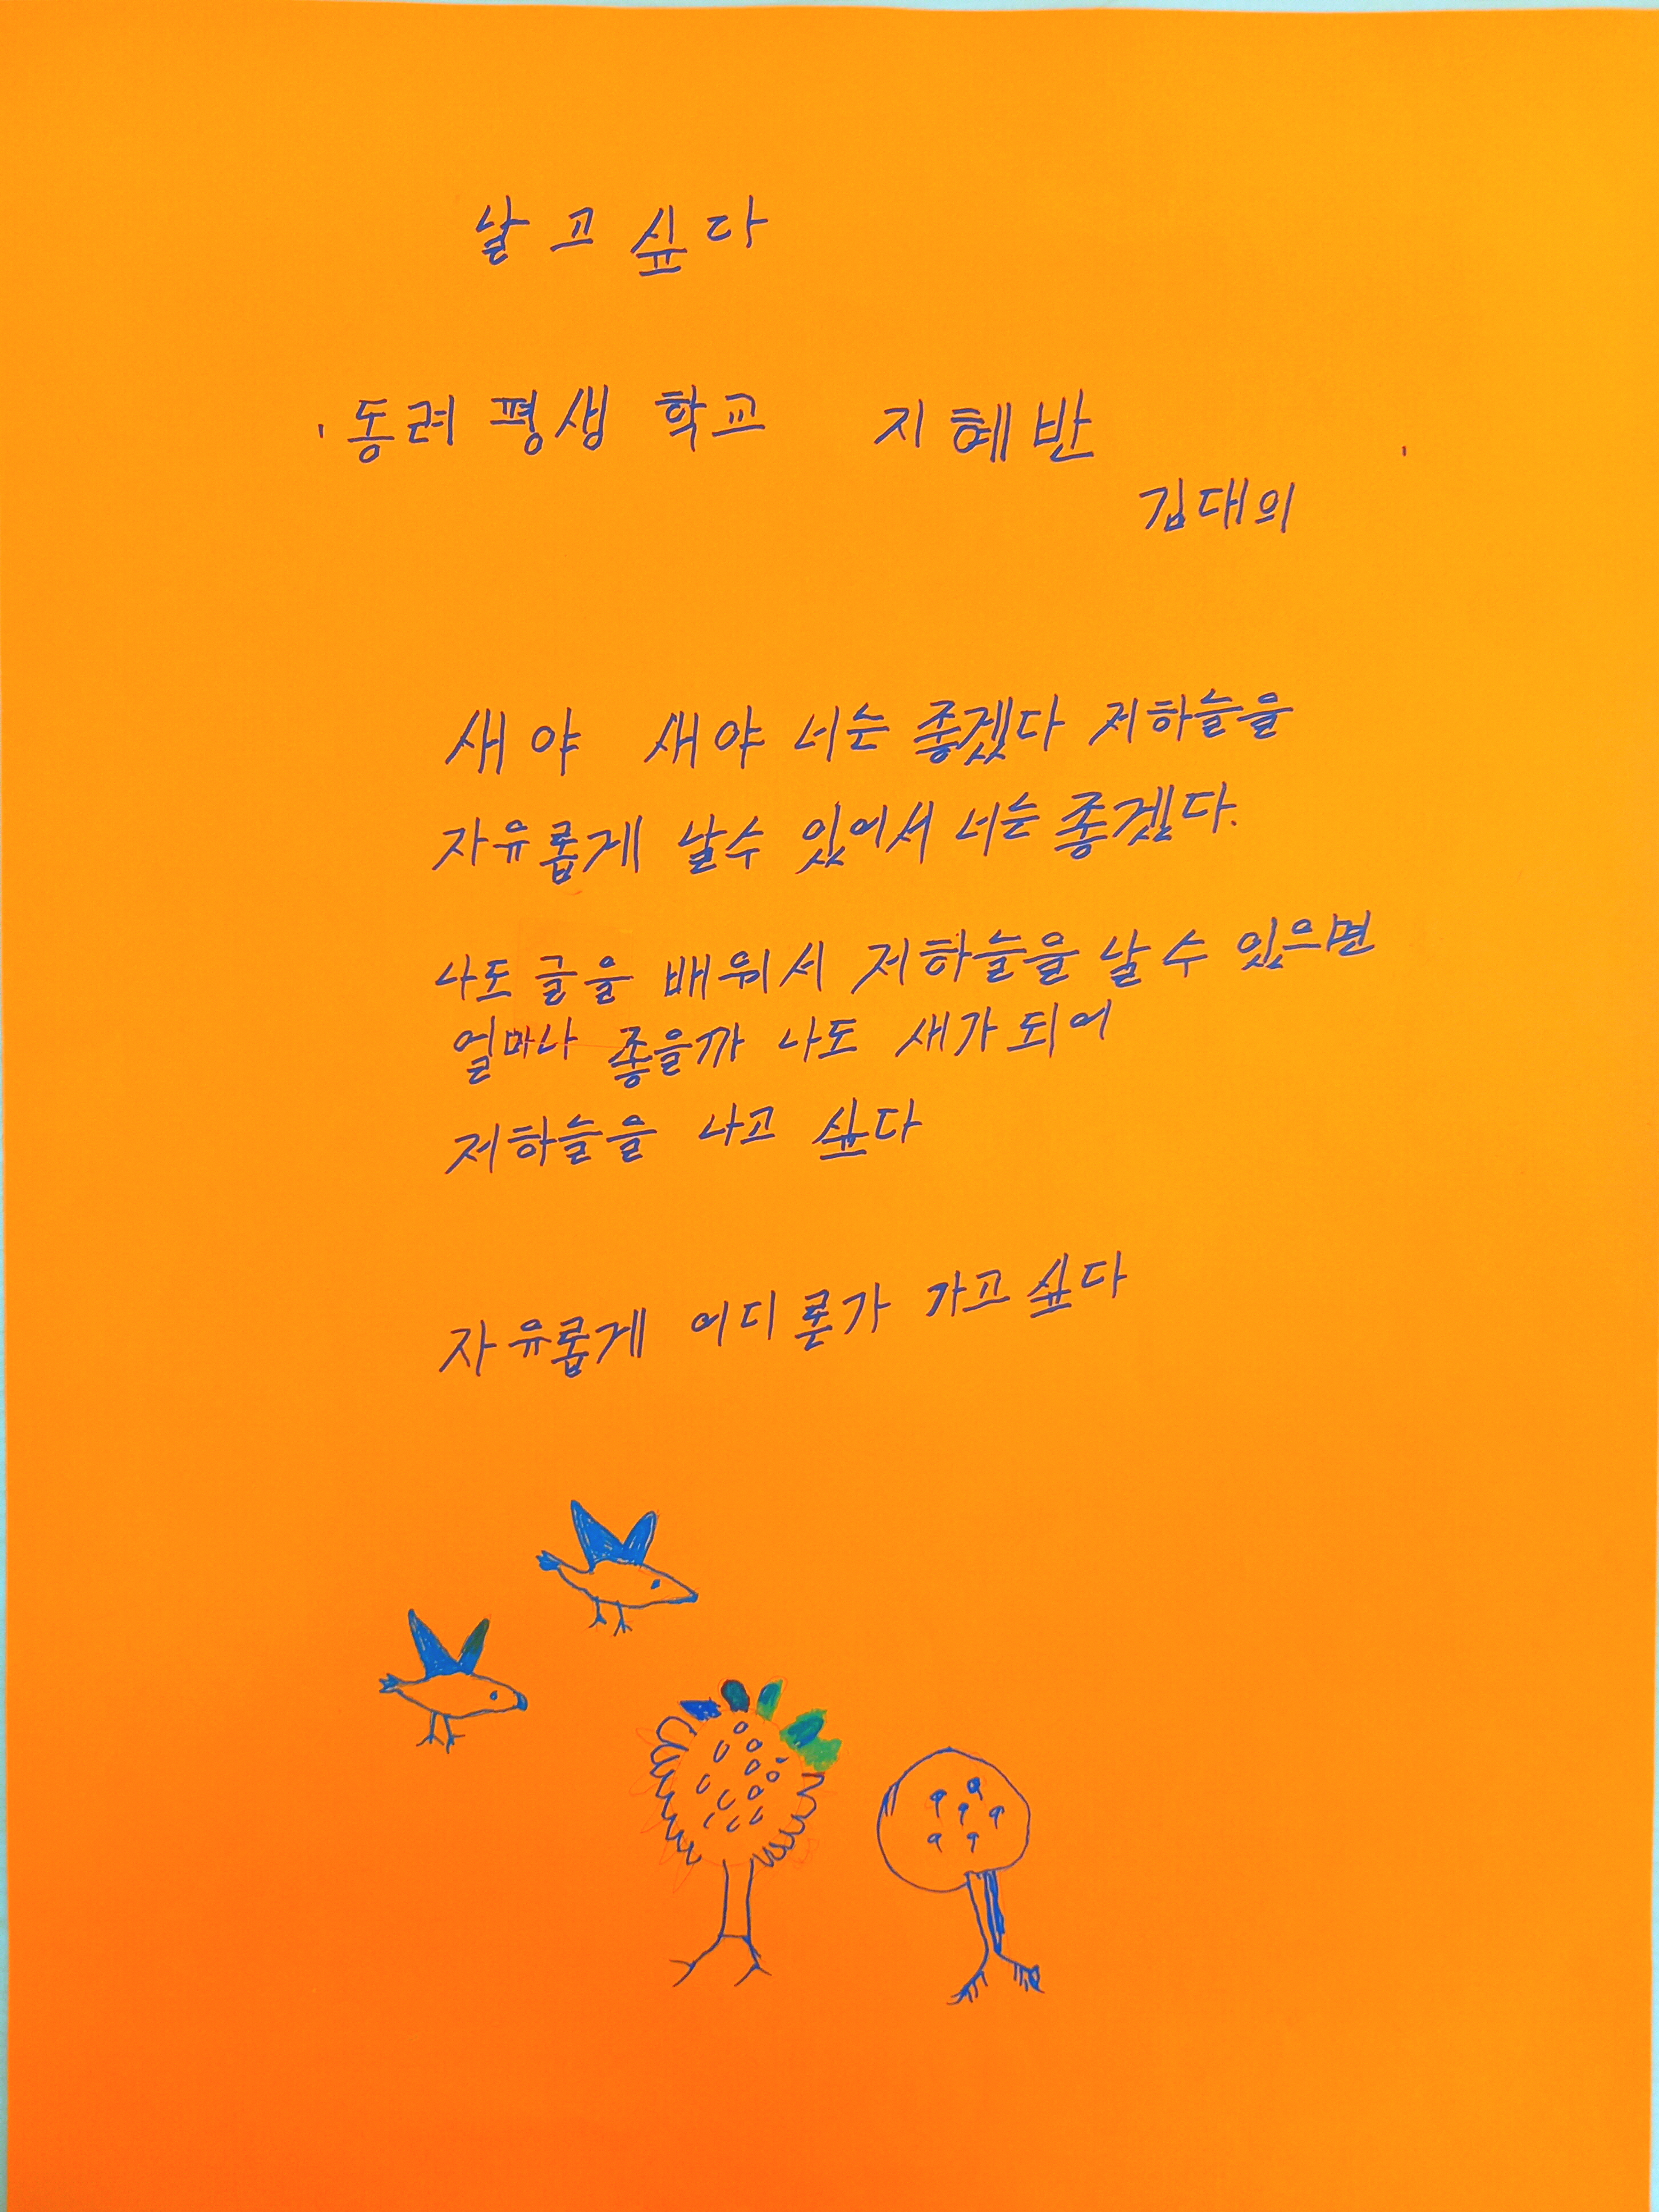 날고 싶다
동려 평생 학교 지혜반
김대의
새야 새야 너는 좋겠다 저하늘을
자유롭게 날수 있어서 너는 좋겠다.
나도 글을 배워서 저하늘을 날수 있으면
얼마나 좋을까 나도 새가 되어
저하늘을 나고 싶다
자유롭게 어디론가 가고 싶다